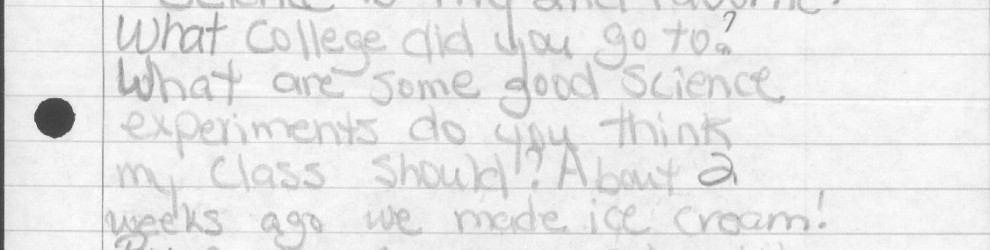 Science is my 2nd favorite!
What college did you go to?
What are some good Science
experiments do you think
my class should? About 2
weeks ago we made ice cream!